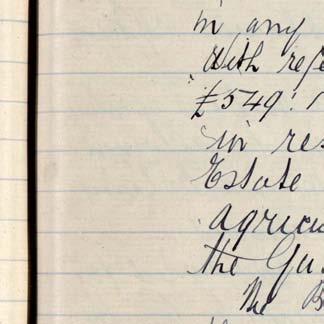 in any
with refe
£549:
in res
Estate
agricu
the Gu
The B